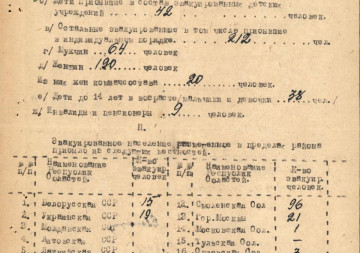 б/ Дети прибывшие в состав эвакуированных детских
учреждений . . . 42 . . . . человек
в/ Остальные эвакуированные в том числе прибывшие
в индивидуальном порядке. . . 212 . . . чел.
г/ Мужчин . . . 64 . . . . человек
д/ Женщин . 190 . . . . человек.
Из них жен комсостава . . . . 20 . . . . человек.
е/ Дети до 14 лет в возрасте/мальчики и девочки . 78 . чел.
ж/ Инвалиды и пенсионеры . 9 . . . . человек.
II.
Эвакуированное население, в пределы района
прибыло из следующих местностей.
№№ п/п Наименование Республик Областей. К-во эвакуир. человек №№ п/п Наименование Республик Областей. К-во эвакуир. человек.
1. Белорусская ССР 15 12. Смоленская Обл. 96
2. Украинская ССР 19 13. Гор.Москвы 21
3. Молдавская ССР 14. Московская Обл. 1
4. Латовская ССР 15. Тульская Обл. —
5. ССР Обл. 3